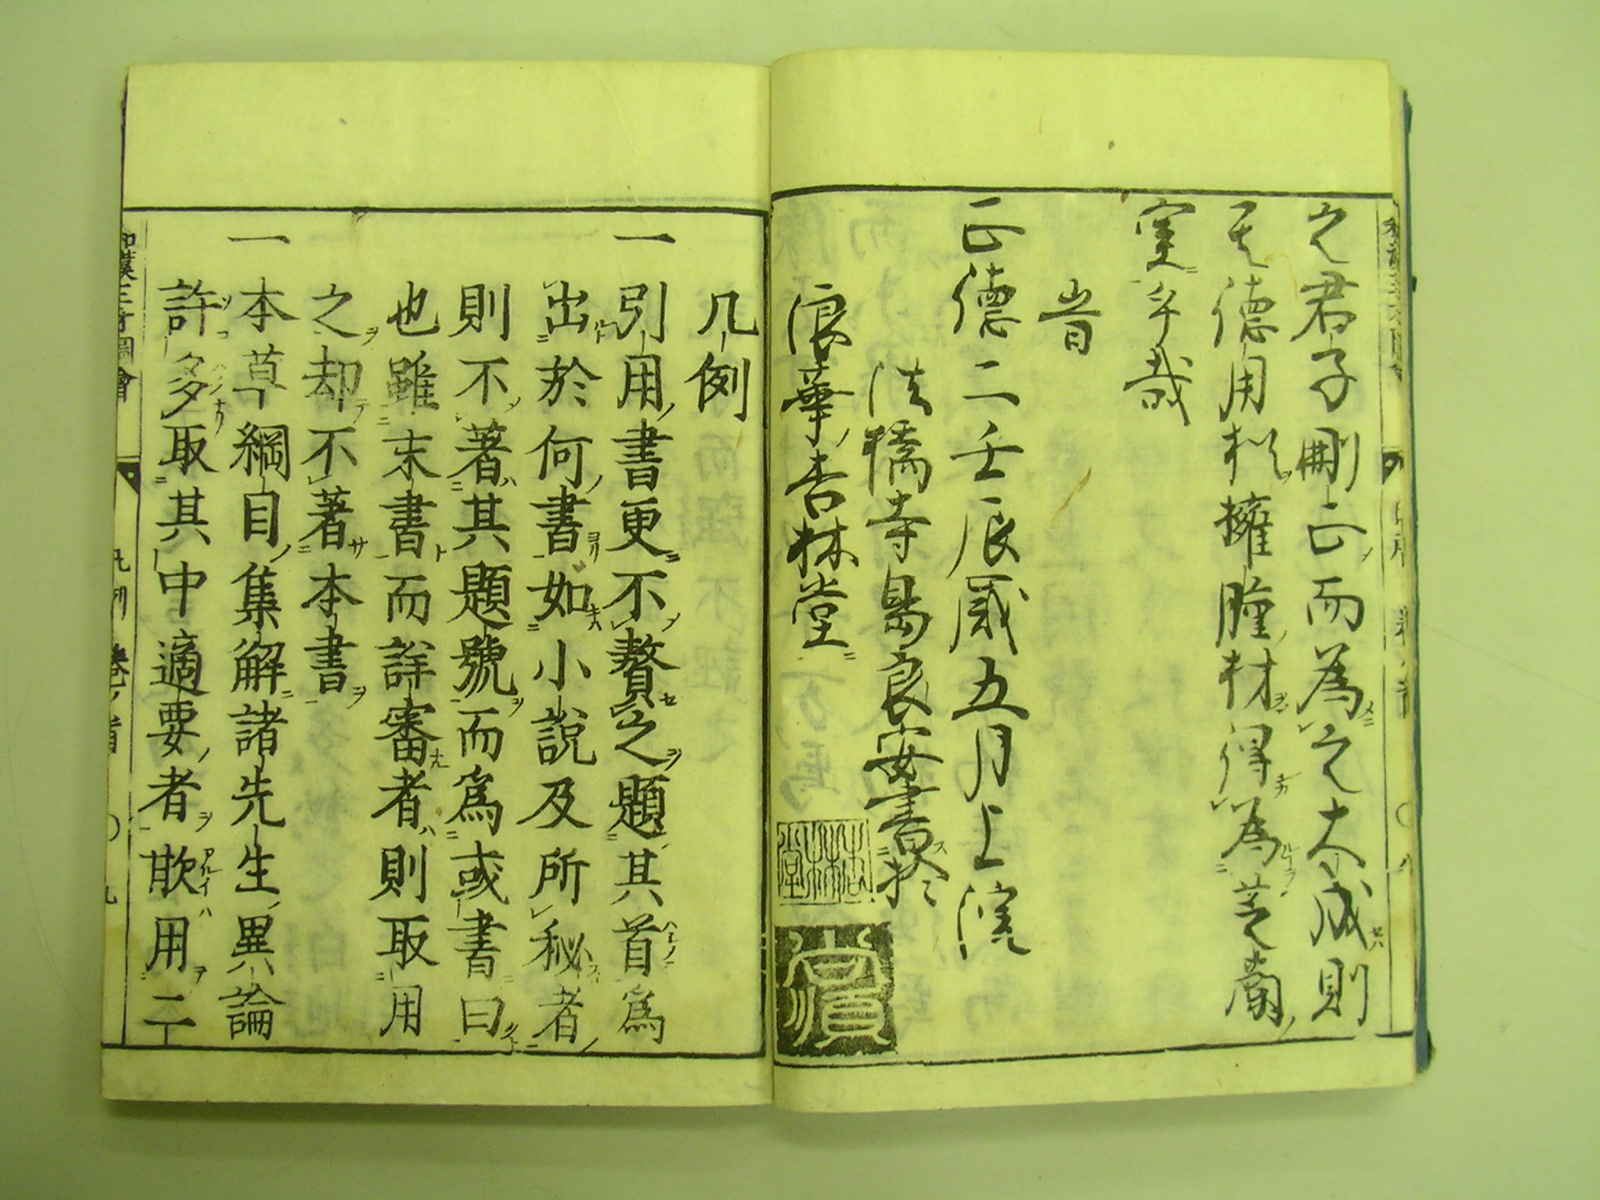 之君子刪正而為之大成則
其德用擁腫材得為芝蘭
室乎哉
旹
正德二壬辰歲五月上浣
法橋寺島良安書於
浪華杏林堂
杏林堂
尚順
凡例
一引用書更不贅之題其首爲
出於何書如小說及所秘者
則不著其題號而爲或書曰
也雖末書而詳審者則取用
之却不著本書
一本草綱目集解諸先生異論
許多取其中適要者歟用二
和漢三才圖會
凡例
卷之首
九